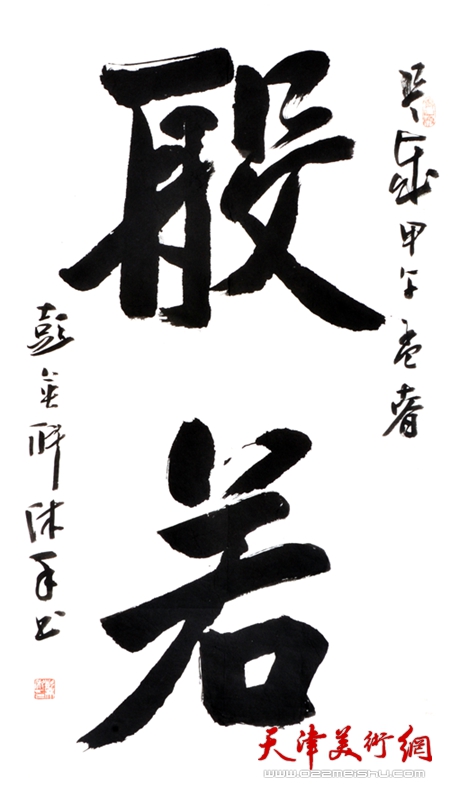 是歲甲午孟春
般若
彭英科沐手书
天津美術網
www.022meishu.com